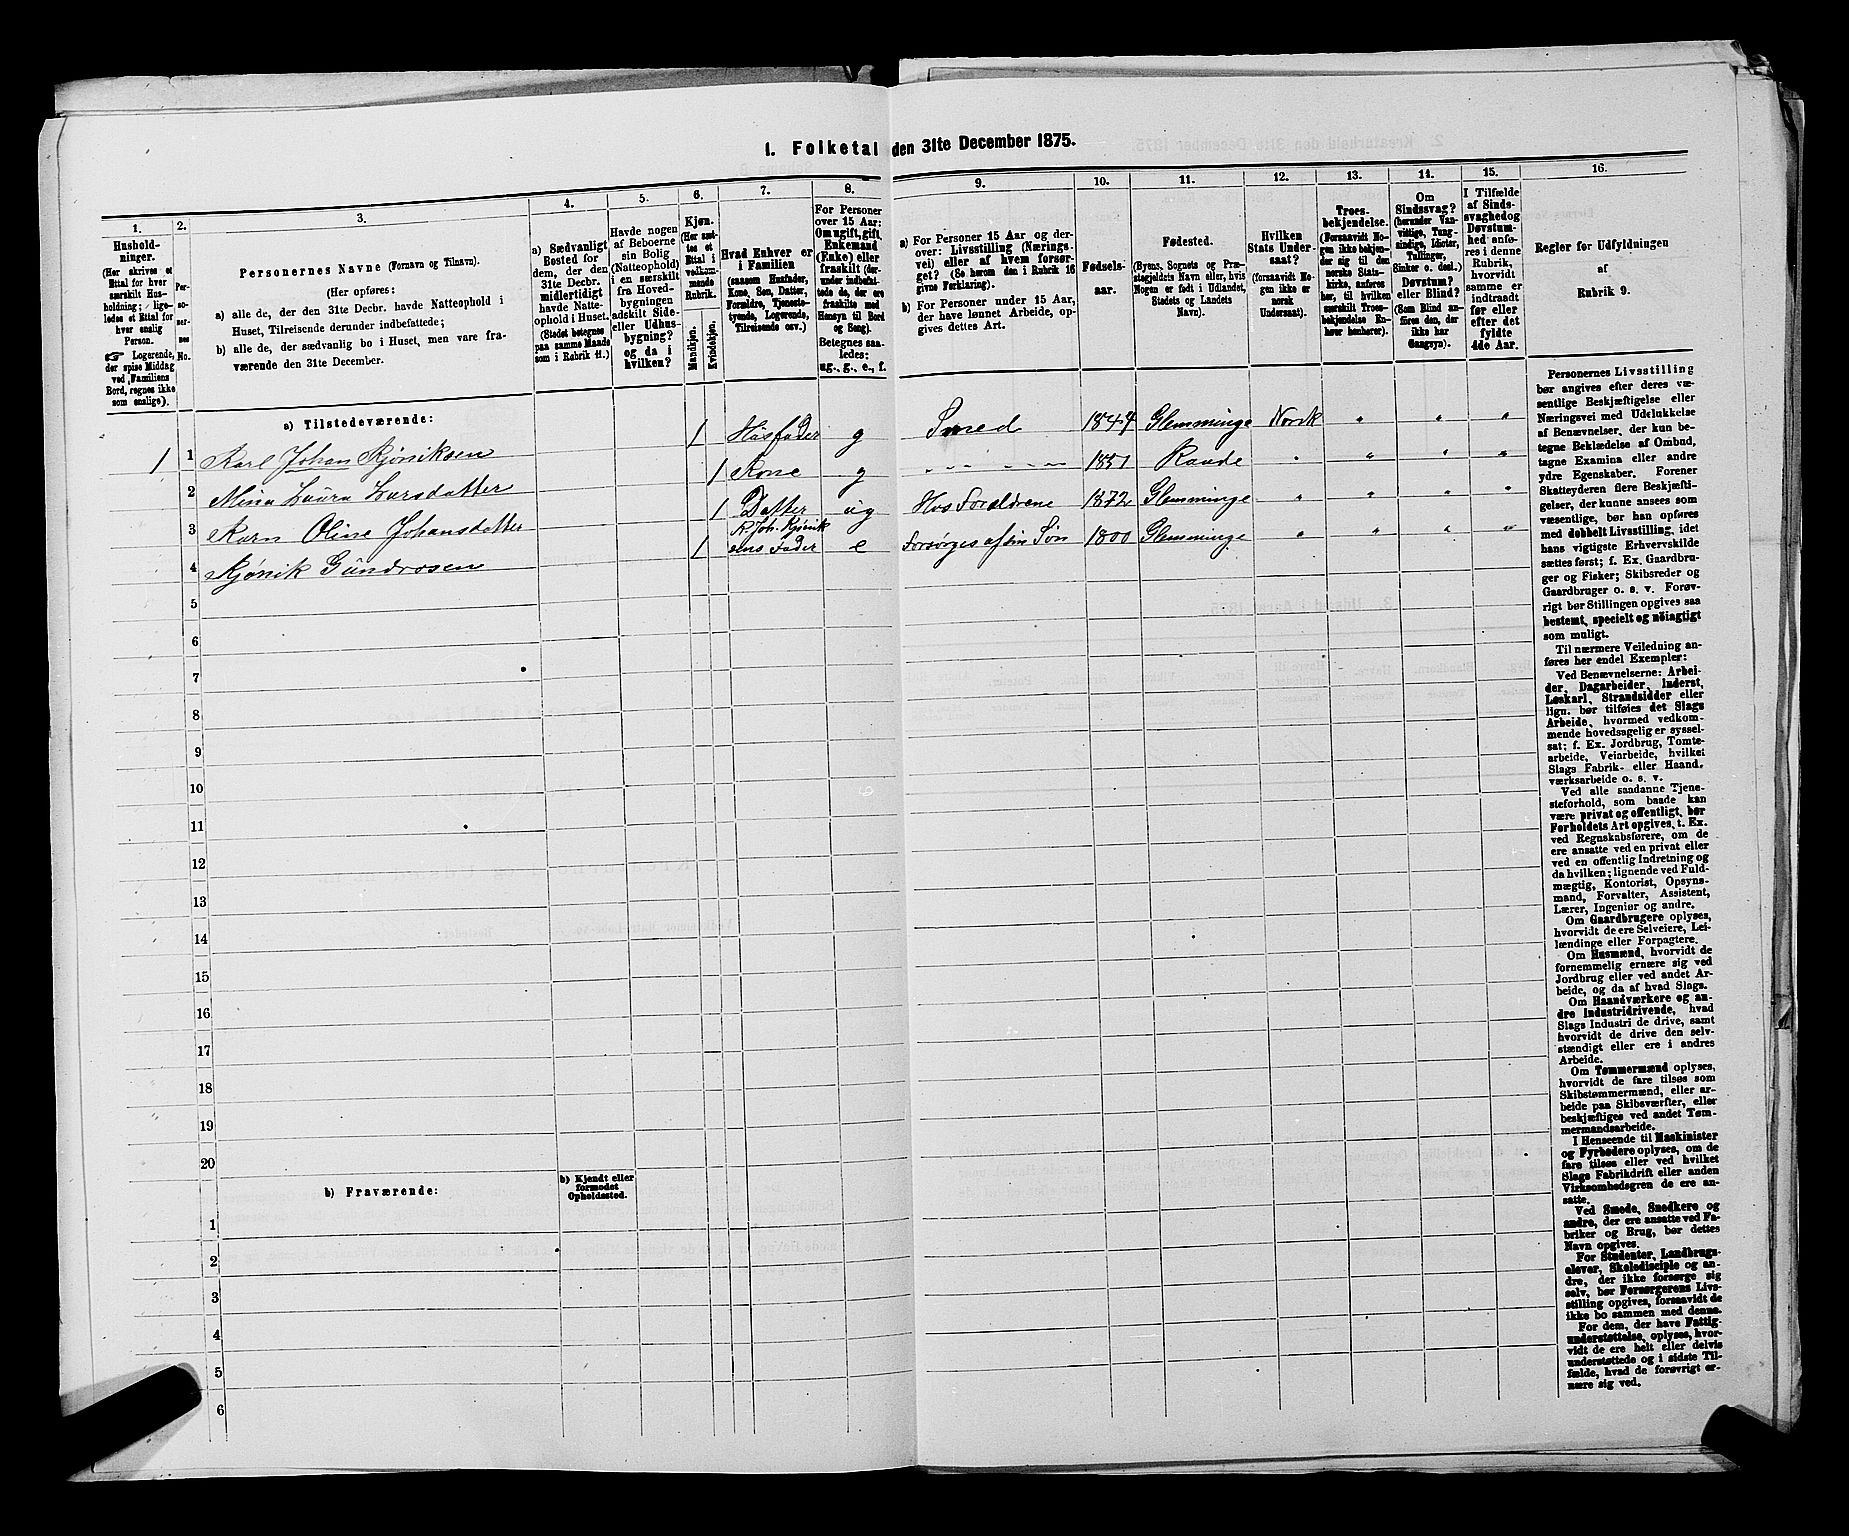 1. Folketal den 31te December 1875.
1. 2. 3. 4. 5. 6. 7. 8. 9. 10. 11. 12. 13. 14. 15. 16.
Hushold-
ninger.
(Her skrives et
Ettal for hver
særskilt Hus-
holdning; lige-
ledes et Ettal for
hver enslig
Person.
☞ Logerende,
der spise Middag
ved Familiens
Bord, regnes ikke
som enslige).
Per-
so-
ner-
nes
No.
Personernes Navne (Fornavn og Tilnavn).
(Her opføres:
a) alle de, der den 31te Decbr. havde Natteophold i
Huset, Tilreisende derunder indbefattede;
b) alle de, der sædvanlig bo i Huset, men vare fra-
værende den 31te December.
a) Sædvanligt
Bosted for
dem, der den
31te Decbr.
midlertidigt
havde Natte-
ophold i Huset.
(Stedet betegnes
paa samme Maade
som i Rubrik 11.)
Havde nogen
af Beboerne
sin Bolig
(Natteophold)
i en særskilt
fra Hoved-
bygningen
adskilt Side-
eller Udhus-
bygning?
og da i
hvilken?
Kjøn.
(Her sæt-
tes et
Ettal i
vedkom-
mende
Rubrik.
Mandkjøn.
Kvindekjøn.
Hvad Enhver er
i Familien
(saasom Husfader,
Kone, Søn, Datter,
Forældre, Tjeneste-
tyende, Logerende,
Tilreisende osv.)
For Personer
over 15 Aar:
Om ugift, gift,
Enkemand
(Enke) eller
fraskilt (der-
under indbefat-
tede de, der ere
fraskilte med
Hensyn til Bord
og Seng).
Betegnes saa-
ledes:
ug., g., e., f.
a) For Personer 15 Aar og der-
over: Livsstilling (Nærings-
vei) eller af hvem forsør-
get? (Se herom den i Rubrik 16
givne Forklaring).
b) For Personer under 15 Aar,
der have lønnet Arbeide, op-
gives dettes Art.
Fødsels-
aar.
Fødested.
(Byens, Sognets og Præ-
stegjeldets Navn eller, hvis
Nogen er født i Udlandet,
Stedets og Landets
Navn).
Hvilken
Stats Under-
saat?
(forsaavidt No-
gen ikke er
norsk
Undersaat).
Troes-
bekjendelse.
(Forsaavidt No-
gen ikke bekjen-
der sig til den
norske Stats-
kirke, anføres
her, til hvilken
særskilt Troes-
bekjendelse En-
hver henhører).
Om
Sindssvag?
(herunder Van-
vittige, Tung-
sindige, Idioter,
Tullinger,
Sinker o. desl.)
Døvstum?
eller Blind?
(Som Blind an-
føres den, der
ikke har
Gangsyn).
I Tilfælde
af Sinds-
svaghed og
Døvstum-
hed anfø-
res i denne
Rubrik,
hvorvidt
samme er
indtraadt
før eller
efter det
fyldte
4de Aar.
Regler for Udfyldningen
af
Rubrik 9.
a) Tilstedeværende:
1 1 Karl Johan Kjøniksen 1 Husfader g Smed 1844 Glemminge Norsk " " "
2 Mina Laura Larsdatter 1 Kone g - - - - 1851 Raade " " " "
3 Karn Oline Johansdatter 1 Datter ug Hos Foraldrene 1872 Glemminge " " " "
4 Kjønik Gundrosen 1 K Joh. Kjønik
ens Fader e Forsørges af sin Søn 1800 Glemminge " " " "
5
6
7
8
9
10
11
12
13
14
15
16
17
18
19
20
b) Fraværende:
b) Kjendt eller
formodet
Opholdssted.
1
2
3
4
5
6
Personernes Livsstilling
bør angives efter deres væ-
sentlige Beskjæftigelse eller
Næringsvei med Udelukkelse
af Benævnelser, der kun be-
tegne Beklædelse af Ombud,
tagne Examina eller andre
ydre Egenskaber. Forener
Skatteyderen flere Beskjæfti-
gelser, der kunne ansees som
væsentlige, bør han opføres
med dobbelt Livsstilling, idet
hans vigtigste Erhvervskilde
sættes først; f. Ex. Gaardbru-
ger og Fisker; Skibsreder og
Gaardbruger o. s. v. Forøv-
rigt bør Stillingen opgives saa
bestemt, specielt og nøiagtigt
som muligt.
Til nærmere Veiledning an-
føres her endel Exempler:
Ved Benævnelserne: Arbei-
der, Dagarbeider, Inderst,
Løskarl, Strandsidder eller
lign. bør tilføies det Slags
Arbeide, hvormed vedkom-
mende hovedsagelig er syssel-
sat; f. Ex. Jordbrug, Tomte-
arbeide, Veiarbeide, hvilket
Slags Fabrik- eller Haand-
værksarbeide o. s. v.
Ved alle saadanne Tjene-
steforhold, som baade kan
være privat og offentligt, bør
Forholdets Art opgives, t. Ex.
ved Regnskabsførere, om de
ere ansatte ved en privat eller
ved en offentlig Indretning og
da hvilken; lignende ved Fuld-
mægtig, Kontorist, Opsyns-
mand, Forvalter, Assistent,
Lærer, Ingeniør og andre.
Om Gaardbrugere oplyses,
hvorvidt de ere Selveiere, Lei-
lændinge eller Forpagtere.
Om Husmænd, hvorvidt de
fornemmelig ernære sig ved
Jordbrug eller ved andet Ar-
beide, og da af hvad Slags.
Om Haandværkere og an-
dre Industridrivende, hvad
Slags Industri de drive, samt
hvorvidt de drive den selv-
stændigt eller ere i andres
Arbeide.
Om Tømmermænd oplyses,
hvorvidt de fare tilsøs som
Skibstømmermænd, eller ar-
beide paa Skibsværfter, eller
beskjæftiges ved andet Tøm-
mermandsarbeide.
I Henseende til Maskinister
og Fyrbødere oplyses, om de
fare tilsøs eller ved hvilket
Slags Fabrikdrift eller anden
Virksomhedsgren de ere an-
satte.
Ved Smede, Snedkere og
andre, der ere ansatte ved Fa-
briker og Brug, bør dettes
Navn opgives.
For Studenter, Landbrugs-
elever, Skoledisciple og an-
dre, der ikke forsørge sig
selv, bør Forsørgerens Livs-
stilling opgives, forsaavidt de
ikke bo sammen med denne.
For dem, der have Fattig-
understøttelse, oplyses, hvor-
vidt de ere helt eller delvis
understøttede og i sidste Til-
fælde, hvad de forøvrigt er-
nære sig ved.